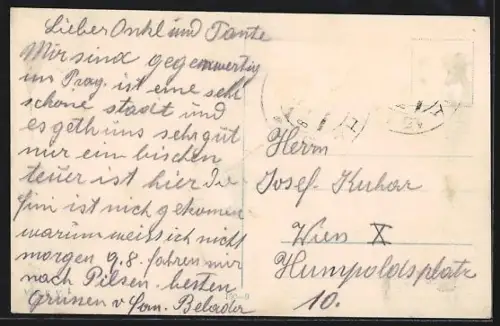 Lieber Onkl und Tante
Mir sind gegenwertig
in Prag. ist eine sehr
schone stadt und
es geth uns sehr gut
nur ein bischen
teuer ist hier die
fini ist nicht gekomen
warum weiss ich nicht
morgen 9.8. fahren mir
nach Pilsen. besten
Grünen v Fam.
Herrn
Josef Kuhar
Wien X
Humpoldsplatz
10.